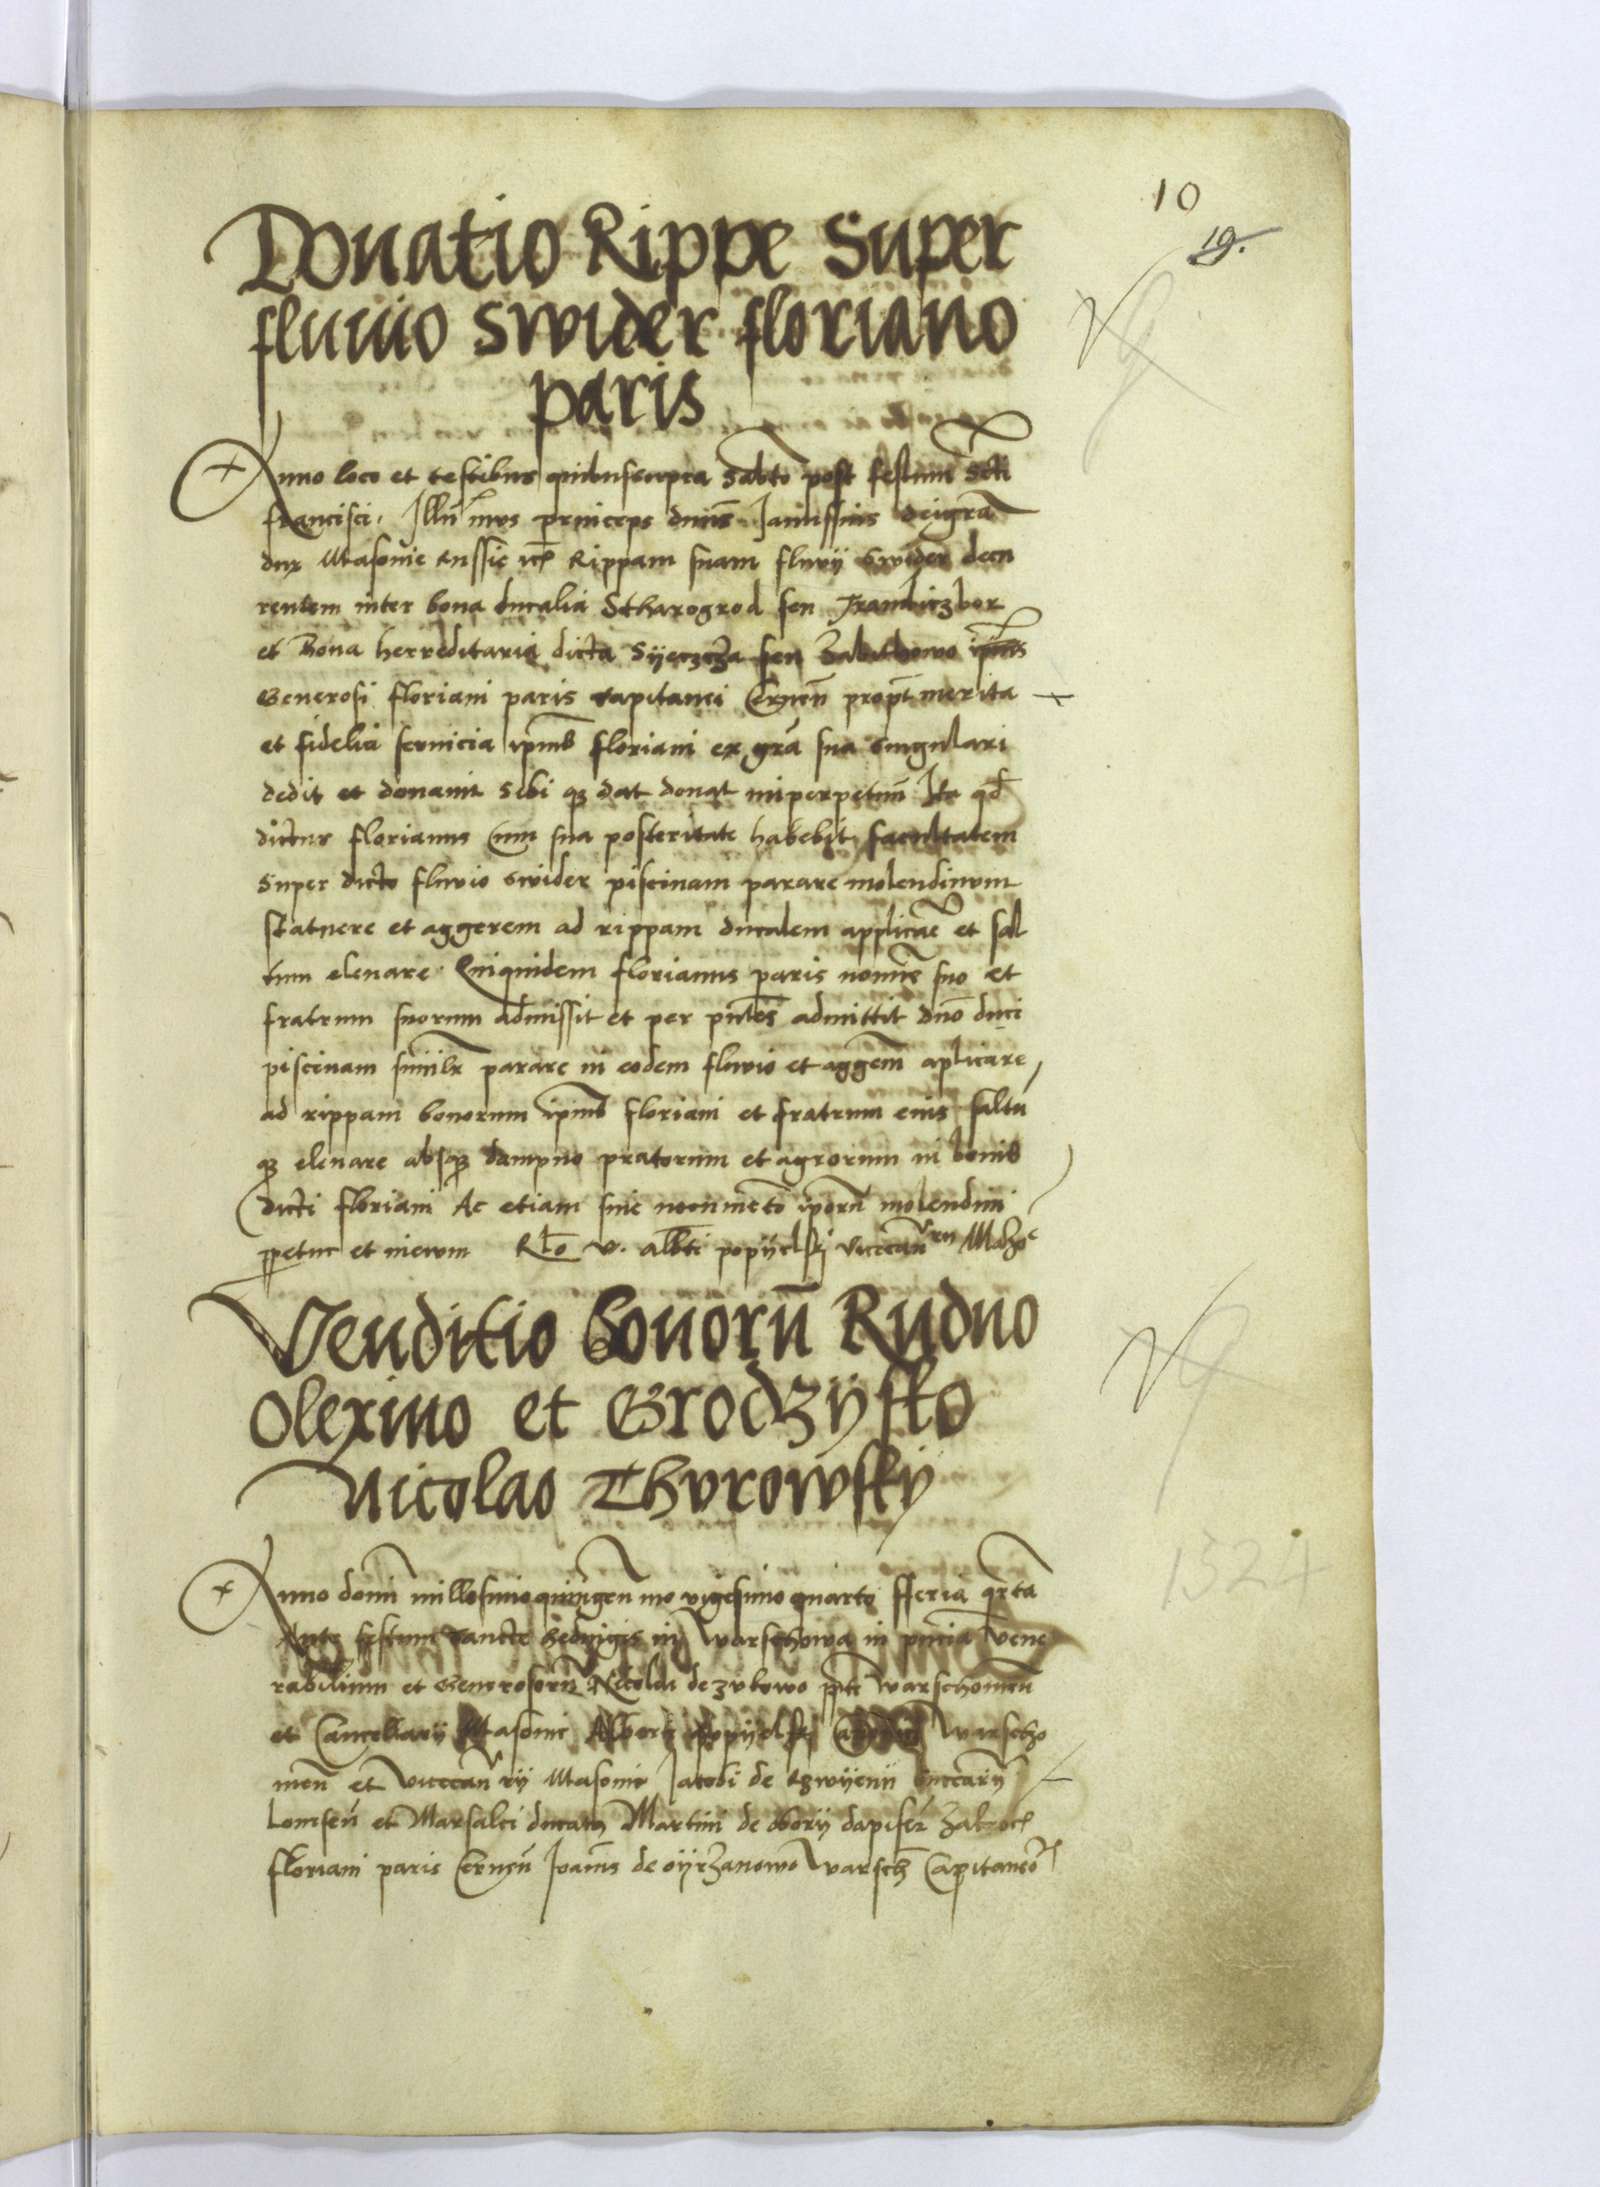 10
19.
Donatio Rippe Super
fluuio Swider floriano
paris
Anno loco et testibus quibus sabto post festum Scti
francisci. Illu mus princeps dnus Janussius dei gra
dux Masouie Russie Rippam suam fluvij Swider decu
rentem inter bona ducalia Stharogrod seu
et Bona hereditaria dicta seu ipius
Generosi floriani paris capitanei Cernen propt merita
et fidelia seruicia ipius floriani ex gra sua singulari
dedit et donauit Sibi qz dat donat inperpetuu Ita qd
dictus florianus Cum sua posteritate habebit facultatem
Super dicto fluvio Swider piscinam parare molendinum
statuere et aggerem ad rippam ducalem applicare et sal
tum eleuare Quiquidem florianus paris nomine suo et
fratrum suorum admissit et per pntes admittit dno duci
piscinam similr parare in eodem fluvio et aggem aplicare
ad rippam bonorum ipius floriani et fratrum eius saltu
qz eleuare absqz dampno pratorum et agrorum in bonis
dicti floriani Ac etiam sine nocumeto iporu molendini
ppetue et in ewm Rlo v. albti popijelskj vicecan rij Mazoe
Venditio bonoru Rudno
Olexino et Grodzijsko
Nicolao Thurowskij
1524
Anno domi millesimoquingen mo vigesimo quarto fferia qrta
Ante festum sancte hedvigis in Warschowa in pncia Vene
rabilium et Generosoru Nicolai de zukowo ptti warschouien
et Cancellarij Masouie Alberti popijelskj warscho
uien et vicecan rij Masouie Jacobi de
Lomsen et Marsalci ducatus Martini de oborij dapiferi Zakroc
floriani paris Cernen Joanis de oijrzanowo warsch Capitaneor